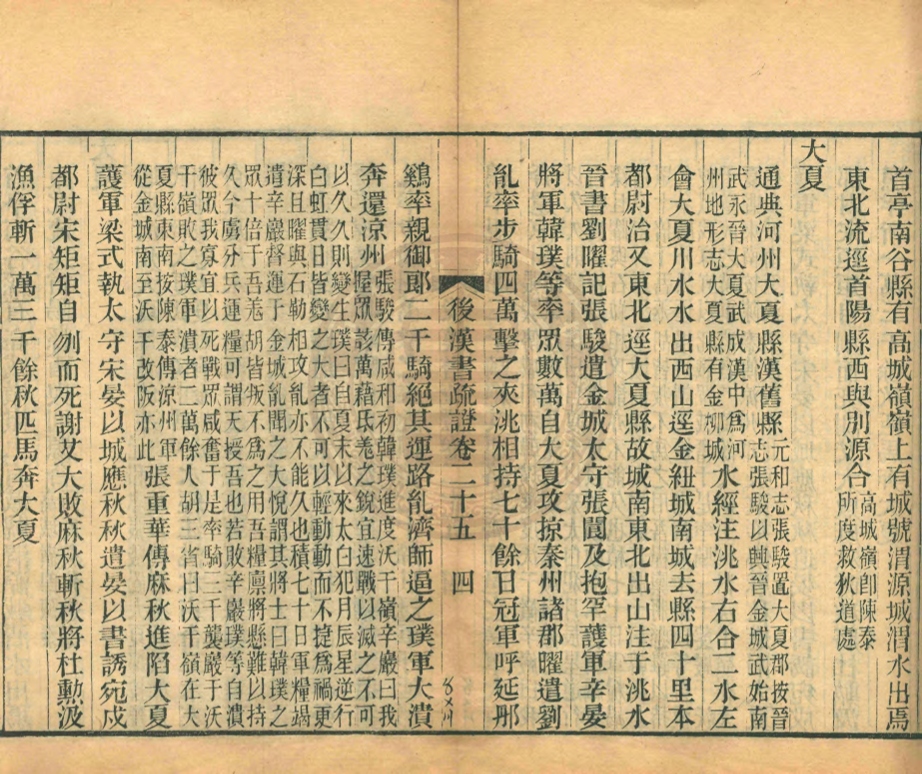 首亭南谷縣有高城嶺嶺上有城號渭源城渭水出焉
東北流逕首陽縣西與別源合高城嶺卽陳泰
所度救狄道處
大夏
通典河州大夏縣漢舊縣元和志張駿置大夏郡按晉
志張駿以興晉金城武始南
武永晉大夏武成漢中爲河
州地形志大夏縣有金柳城水經注洮水右合二水左
會大夏川水水出西山逕金紐城南城去縣四十里本
都尉治又東北逕大夏縣故城南東北出山注于洮水
晉書劉曜記張駿遣金城太守張閬及抱罕護軍辛晏
將軍韓璞等率眾數萬自大夏攻掠秦州諸郡曜遣劉
亂率步騎四萬擊之夾洮相持七十餘日冠軍呼延那
後漢書疏證卷二十五 四
鷄率親御郞二千騎絕其運路亂濟師逼之璞軍大潰
奔還涼州張駿傳咸和初韓璞進度沃干嶺辛巖曰我
握眾該萬藉氐羌之銳宜速戰以滅之不可
以久久則變生璞曰自夏末以來太白犯月辰星逆行
白虹貫日皆變之大者不可以輕動動而不捷爲禍更
深且曜與石勒相攻亂亦不能久也積七十日軍糧竭
遣辛巖督運于金城亂聞之大悅謂其將士曰韓璞之
眾十倍于吾羌胡皆叛不爲之用吾糧廩將懸難以持
久今虜分兵運糧可謂天授吾也若敗辛巖璞等自潰
彼眾我寡宜以死戰眾咸奮于是率騎三千襲巖于沃
干嶺敗之璞軍潰者二萬餘人胡三省曰沃干嶺在大
夏縣東南按陳泰傳涼州軍
從金城南至沃干改阪亦此張重華傳麻秋進陷大夏
護軍梁式執太守宋晏以城應秋秋遣晏以書誘宛戍
都尉宋矩矩自刎而死謝艾大敗麻秋斬秋將杜勳汲
漁俘斬一萬三千餘秋匹馬奔大夏